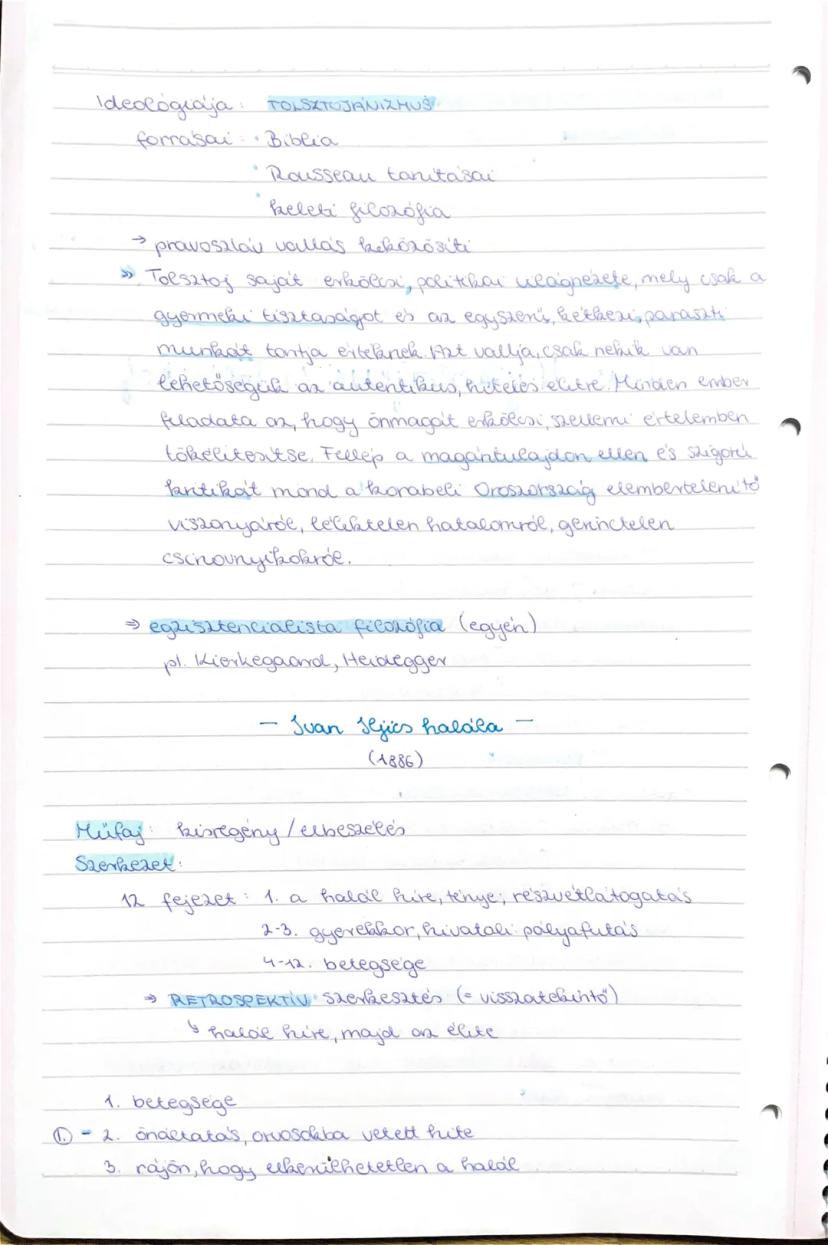 Ideológiája: TOLSZTOJÁNIZMUS
forrásai: • Biblia
• Rousseau tanításai
• keleti filozófia
→ pravoszláv vallás kiközösíti
» Tolsztoj saját erkölcsi, politikai világnézete, mely csak a
gyermeki tisztaságot és az egyszerű, kétkezi, paraszti
munkát tartja értéknek. Azt vallja, csak nekik van
lehetőségük az autentikus, hiteles életre. Minden ember
feladata az, hogy önmagát erkölcsi, szellemi értelemben
tökéletesítse. Fellép a magántulajdon ellen és szigorú
kritikát mond a korabeli Oroszország elembertelenítő
viszonyáról, lélektelen hatalomról, gerinctelen
csinovnyikokról.
⇒ egzisztencialista filozófia (egyén)
pl. Kierkegaard, Heidegger
— Ivan Iljics halála —
(1886)
Műfaj: kisregény / elbeszélés
Szerkezet:
12 fejezet: 1. a halál híre, ténye; részvétlátogatás
2-3. gyerekkor, hivatali pályafutás
4-12. betegsége
⇒ RETROSPEKTÍV szerkesztés (= visszatekintő)
↳ halál híre, majd az élete
1. betegsége
① - 2. önáltatás, orvosokba vetett hite
3. rájön, hogy elkerülhetetlen a halál